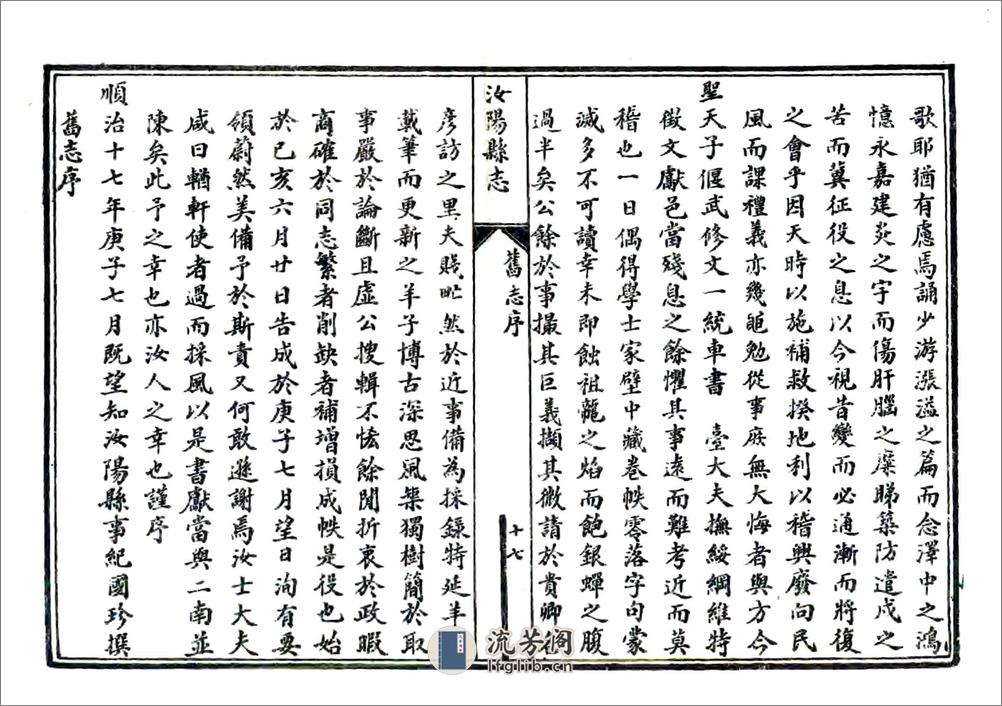 歌耶猶有慮焉誦少游漲溢之篇而念澤中之鴻
憶永嘉建炎之字而傷肝腦之糜睇築防遣戍之
苦而冀征役之息以今視昔變而必通漸而將復
之會乎因天時以施補救揆地利以稽興廢向民
風而課禮義亦幾黽勉從事庶無大悔者與方今
聖天子偃武修文一統車書　臺大夫撫綏綱維特
徵文獻邑當殘息之餘懼其事遠而難考近而莫
稽也一日偶得學士家壁中藏卷帙零落字句蒙
滅多不可讀幸未即蝕祖龍之焰而飽銀蟬之腹
過半矣公餘於事撮其巨義擷其微請於貴卿
汝陽縣志
舊志序
十七
彥訪之里夫賤甿然於近事備為採錄特延羊
載筆而更新之羊子博古深思風槩獨樹簡於取
事嚴於論斷且虛公搜輯不恡餘閒折衷於政暇
商確於同志繁者削缺者補增損成帙是役也始
於己亥六月廿日告成於庚子七月望日洵有要
領蔚然美備予於斯責又何敢遜謝焉汝士大夫
咸曰輶軒使者過而採風以是書獻當與二南並
陳矣此予之幸也亦汝人之幸也謹序
順治十七年庚子七月既望知汝陽縣事紀國珍撰
舊志序
流芳阁
lfglib.cn